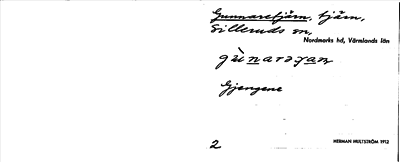 Gunnaretjärn, tjärn,
Silleruds sn,
Nordmarks hd, Värmlands län
Gjangene
2
HERMAN HULTSTRÖM 1912